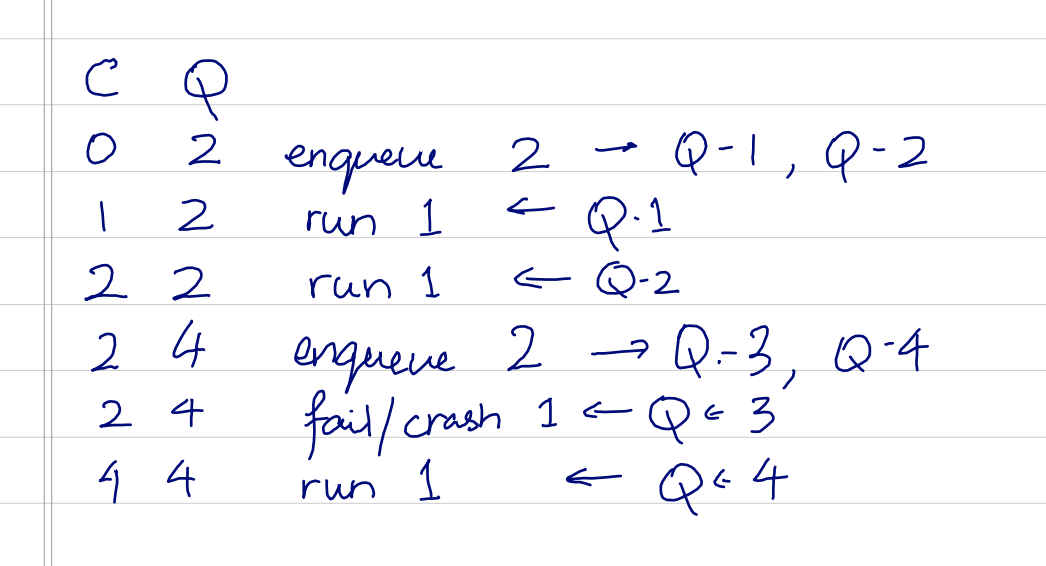 C Q
0 2 enqueue 2 → Q-1, Q-2
1 2 run 1 ← Q.1
2 2 run 1 ← Q-2
2 4 enqueue 2 → Q.-3, Q-4
2 4 fail/crash 1 ← Q ← 3
4 4 run 1 ← Q ← 4